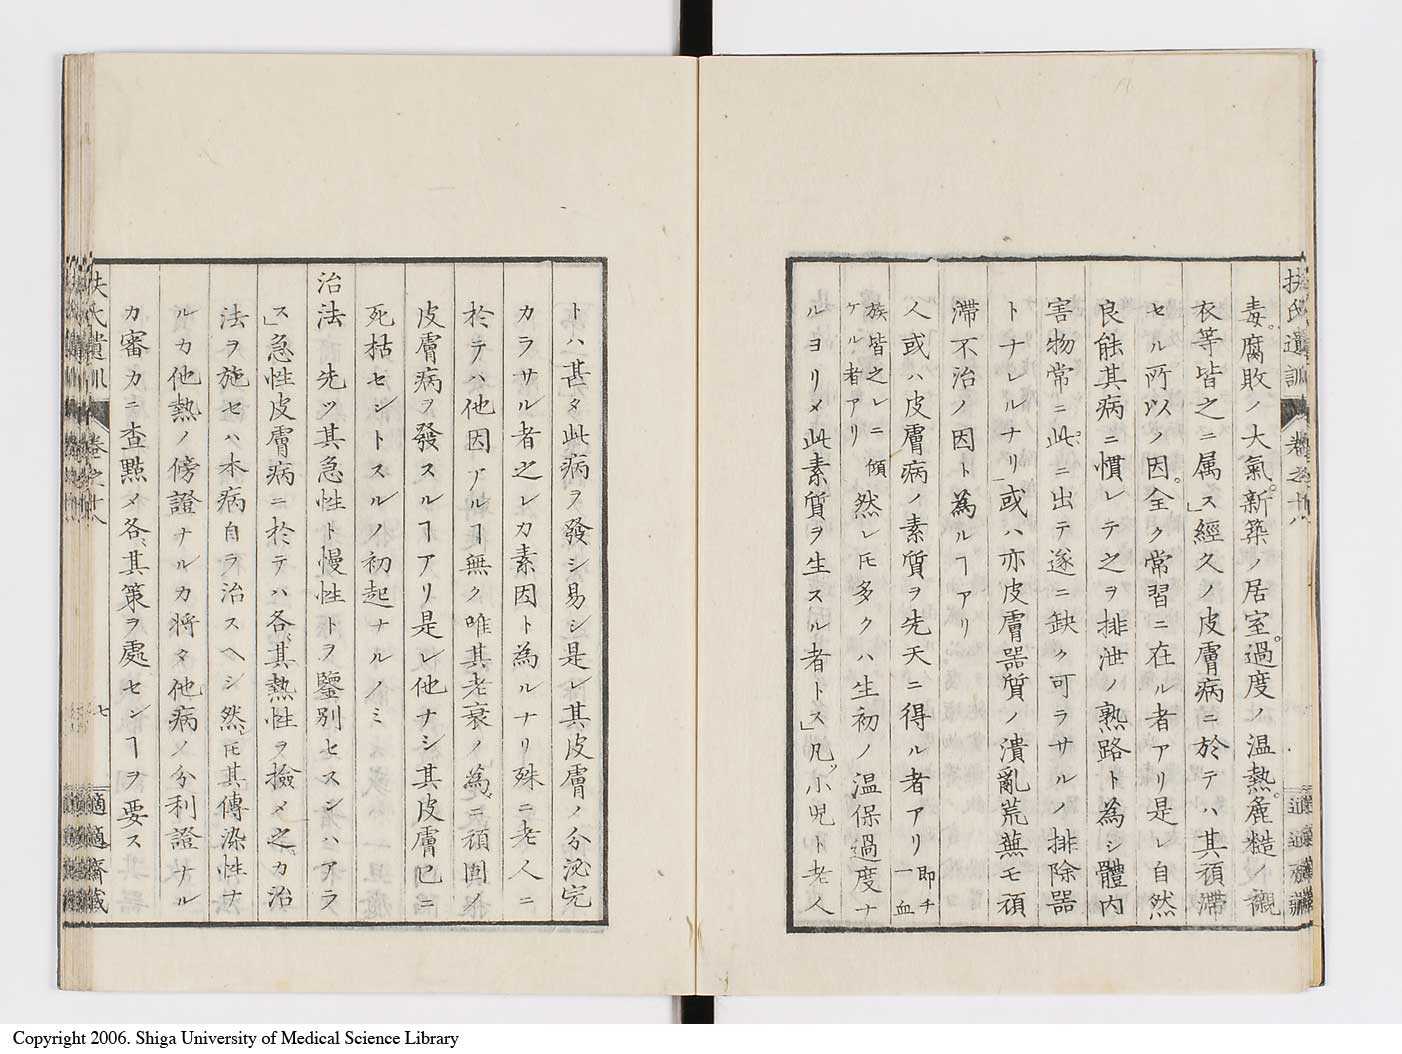 扶氏遺訓 卷之十八
毒。腐敗ノ大氣。新築ノ居室。過度ノ温熱。麁糙ノ襯
衣等皆之ニ属ス」經久ノ皮膚病ニ於テハ其頑滯
セル所以ノ因。全ク常習ニ在ル者アリ是レ自然
良能其病ニ慣レテ之ヲ排泄ノ熟路ト為シ體内
害物常ニ此ニ出テ遂ニ缺ク可ラサルノ排除器
トナレルナリ」或ハ亦皮膚器質ノ潰亂荒蕪モ頑
滯不治ノ因ト為ルヿアリ
人或ハ皮膚病ノ素質ヲ先天ニ得ル者アリ即チ一血
族皆之レニ傾ケル者アリ然レ𪜈多クハ生初ノ温保過度ナ
ルヨリメ此素質ヲ生スル者トス」凡ソ小児ト老人
トハ甚タ此病ヲ發シ易シ是レ其皮膚ノ分泌完
カラサル者之レカ素因ト為ルナリ殊ニ老人ニ
於テハ他因アルヿ無ク唯其老衰ノ為ニ頑固ノ
皮膚病ヲ發スルヿアリ是レ他ナシ其皮膚已ニ
死枯セントスルノ初起ナルノミ
治法 先ツ其急性ト慢性トヲ鑒別セスンハアラ
ス」急性皮膚病ニ於テハ各其熱性ヲ撿メ之カ治
法ヲ施セハ本病自ラ治スヘシ然𪜈其傳染性ナ
ルカ他熱ノ傍證ナルカ将タ他病ノ分利證ナル
カ審カニ査點メ各其策ヲ處センヿヲ要ス
扶氏遺訓 卷之十八 七 適適齋藏
Copyright 2006. Shiga University of Medical Science Library